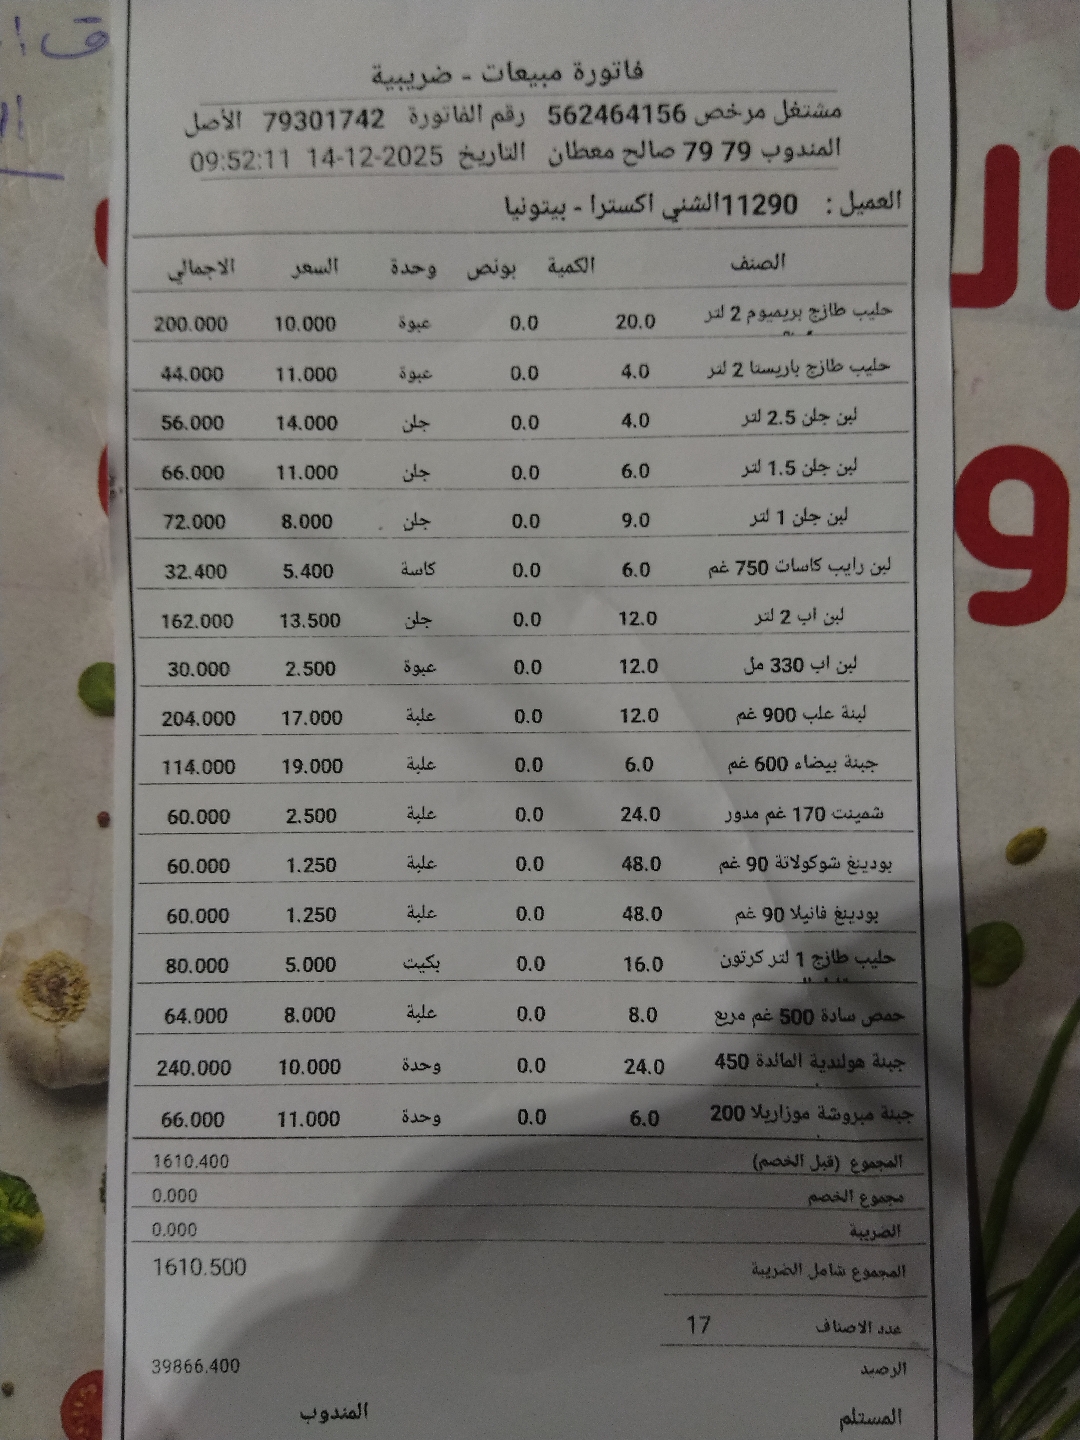 فاتورة مبيعات - ضريبية
مشتغل مرخص 562464156 رقم الفاتورة 79301742 الأصل
المندوب 79 79 صالح معطان التاريخ 14-12-2025 09:52:11
العميل : 11290الشني اكسترا - بيتونيا
الصنف الكمية بونص وحدة السعر الاجمالي
حليب طازج بريميوم 2 لتر 20.0 0.0 عبوة 10.000 200.000
حليب طازج باريستا 2 لتر 4.0 0.0 عبوة 11.000 44.000
لبن جلن 2.5 لتر 4.0 0.0 جلن 14.000 56.000
لبن جلن 1.5 لتر 6.0 0.0 جلن 11.000 66.000
لبن جلن 1 لتر 9.0 0.0 جلن 8.000 72.000
لبن رايب كاسات 750 غم 6.0 0.0 كاسة 5.400 32.400
لبن اب 2 لتر 12.0 0.0 جلن 13.500 162.000
لبن اب 330 مل 12.0 0.0 عبوة 2.500 30.000
لبنة علب 900 غم 12.0 0.0 علبة 17.000 204.000
جبنة بيضاء 600 غم 6.0 0.0 علبة 19.000 114.000
شمينت 170 غم مدور 24.0 0.0 علبة 2.500 60.000
بودينغ شوكولاتة 90 غم 48.0 0.0 علبة 1.250 60.000
بودينغ فانيلا 90 غم 48.0 0.0 علبة 1.250 60.000
حليب طازج 1 لتر كرتون 16.0 0.0 بكيت 5.000 80.000
حمص سادة 500 غم مربع 8.0 0.0 علبة 8.000 64.000
جبنة هولندية المائدة 450 24.0 0.0 وحدة 10.000 240.000
جبنة مبروشة موزاريلا 200 6.0 0.0 وحدة 11.000 66.000
المجموع (قبل الخصم) 1610.400
مجموع الخصم 0.000
الضريبة 0.000
المجموع شامل الضريبة 1610.500
عدد الاصناف 17
الرصيد 39866.400
المستلم المندوب